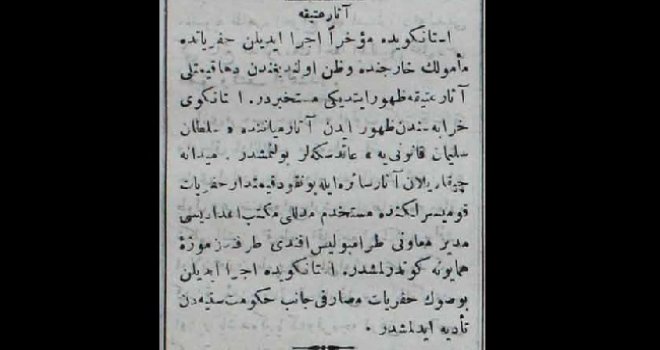 آثار عتيقه
استانكويده مؤخراً اجرا ايديلن حفرياتده
مأمولك خارجنده وظن اولنديغندن دها قيمتلى
آثار عتيقه ظهور ايتديكى مستخبردر. استانكوى
خرابه سندن ظهور ايدن آثار مياننده « سلطان
سليمان قانونى يه » عائد سكه لر بولنمشدر. ميدانه
چيقاريلان آثار سائره ايله بو نقود قيمتدار حفريات
قوميسرلكنده مستخدم مدللى مكتب اعداديسى
مدير معاونى طرامبوليس افندى طرفندن موزهٔ
همايونه كوندرلمشدر. استانكويده اجرا ايديلن
بو صوك حفريات مصارفى جانب حكومت سنيه دن
تأديه ايدلمشدر .